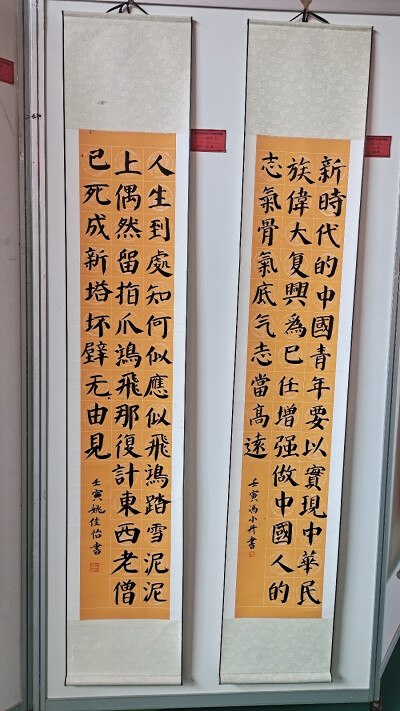 新時代的中國青年要以實現中華民
族偉大复興為已任增强做中國人的
志氣骨氣底气志當高遠
壬寅冯小書
人生到處知何似應似飛鴻踏雪泥泥
上偶然留指爪鴻飛那復計東西老僧
已死成新塔坏壁无由見
壬寅姚佳怡書